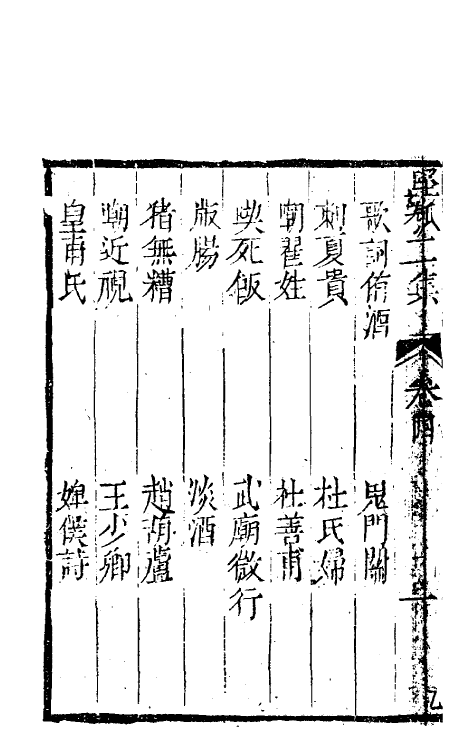 集 卷四 一
歌詞侑酒 鬼門關
刺夏貴 杜氏婦
嘲翟姓 杜善甫
喫死飯 武廟微行
版腸 淡酒
猪無糟 趙葫蘆
嘲近視 王少卿
皇甫氏 婢僕詩